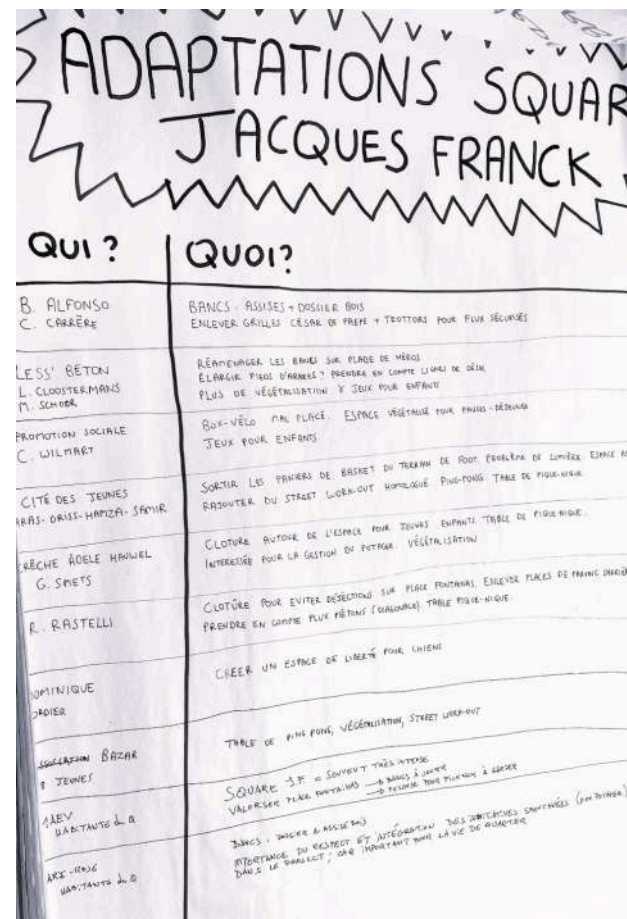 ADAPTATIONS SQUAR
JACQUES FRANCK
QUI ?
QUOI?
B. ALFONSO
C. CARRÈRE
BANCS : ASSISES + DOSSIER BOIS
ENLEVER GRILLES CÉSAR DE PAEPE + TROTTOIRS POUR FLUX SÉCURISÉS
LESS' BÉTON
L. CLOOSTERMANS
M. SCHOOR
RÉAMENAGER LES BANCS SUR PLACE DE HÉROS
ÉLARGIR PIEDS D'ARBRES ? PRENDRE EN COMPTE LIGNES DE DÉSIR
PLUS DE VÉGÉTALISATION & JEUX POUR ENFANTS
PROMOTION SOCIALE
C. WILMART
BOX-VÉLO MAL PLACÉ. ESPACE VÉGÉTALISÉ POUR PAUSES-DÉJEUNER
JEUX POUR ENFANTS
CITÉ DES JEUNES
DRISS - HAMZA - SAMIR
SORTIR LES PANIERS DE BASKET DU TERRAIN DE FOOT. PROBLÈME DE LUMIÈRE. ESPACE
RAJOUTER DU STREET WORK-OUT HOMOLOGUÉ. PING-PONG. TABLE DE PIQUE-NIQUE.
RÈCHE ADELE HANWEL
G. SMETS
CLOTURE AUTOUR DE L'ESPACE POUR JEUNES ENFANTS. TABLE DE PIQUE-NIQUE.
INTERESSÉE POUR LA GESTION DU POTAGER. VÉGÉTALISATION
R. RASTELLI
CLOTÛRE POUR EVITER DÉJECTIONS SUR PLACE FONTAINAS. ENLEVER PLACES DE PARKING DERRIÈ
PRENDRE EN COMPTE FLUX PIÉTONS (DIAGONALE) TABLE PIQUE-NIQUE
OMINIQUE
CRÉER UN ESPACE DE LIBERTÉ POUR CHIENS
BAZAR
8 JEUNES
TABLE DE PING PONG, VÉGÉTALISATION, STREET WORK-OUT
HABITANTE
SQUARE JF = SOUVENT TRÈS INTENSE
VALORISER PLACE FONTAINAS → BANCS À
→ PELOUSE POUR PICKNICK À GARDER
HABITANTE
BANCS : DOSSIER & ASSISE BOIS
IMPORTANCE DU RESPECT ET INTÉGRATION DES INITIATIVES SPONTANÉES
DANS LE ; CAR IMPORTANT POUR LA VIE DE QUARTIER